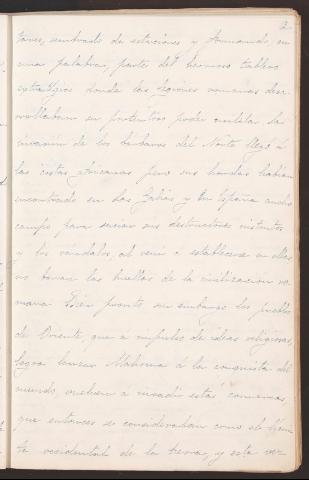 2
tares, sembrado de estaciones y formando, en
una palabra, parte del hermoso tablero
estratégico donde las legiones romanas desa-
rrollaban su portentoso poder militar. La
invasión de los bárbaros del Norte llegó á
las costas africanas pero sus hordas habían
encontrado en las Galias y en España ancho
campo para saciar sus destructores instintos
y los vándalos, al venir á establecerse en ellas
no borran las huellas de la civilización ro-
mana. Bien pronto sin embargo los pueblos
de Oriente, que á impulsos de ideas religiosas,
logra lanzar Mahoma á la conquista del
mundo, vuelven á invadir estas comarcas,
que entonces se consideraban como el lími-
te occidental de la tierra, y esta vez